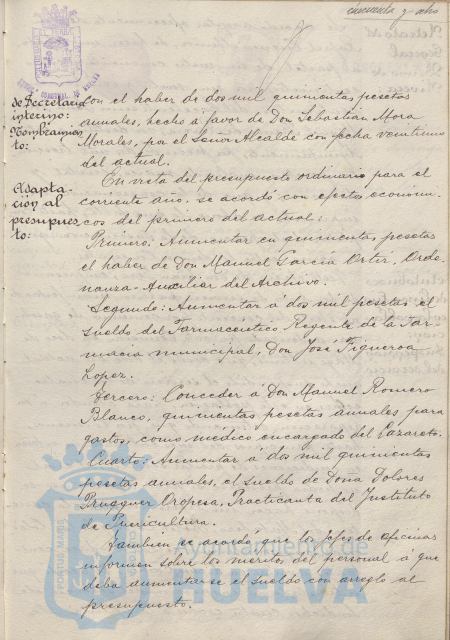 cincuenta y ocho
de Secretario
interino:
Nombramien
to:
con el haber de dos mil quinientas pesetas
anuales, hecho á favor de Don Sebastián Mora
Morales, por el Señor Alcalde con fecha veintiuno
del actual.
Adapta-
ción al
presupues
to:
En vista del presupuesto ordinario para el
corriente año, se acordó con efectos económi-
cos del primero del actual:
Primero: Aumentar en quinientas pesetas
el haber de Don Manuel García Ortiz, Orde-
nanza-Auxiliar del Archivo.
Segundo: Aumentar á dos mil pesetas el
sueldo del Farmaceutico Regente de la Far-
macia municipal, Don José Figueroa
Lopez.
Tercero: Conceder á Don Manuel Romero
Blanco, quinientas pesetas anuales para
gastos, como médico encargado del Lazareto.
Cuarto: Aumentar á dos mil quinientas
pesetas anuales, el sueldo de Doña Dolores
Prugguer Oropesa, Practicanta del Instituto
de Puericultura.
Tambien se acordó que los Jefes de oficinas
informen sobre los meritos del personal á que
deba aumentarse el sueldo con arreglo al
presupuesto.
Ayuntamiento de
HUELVA